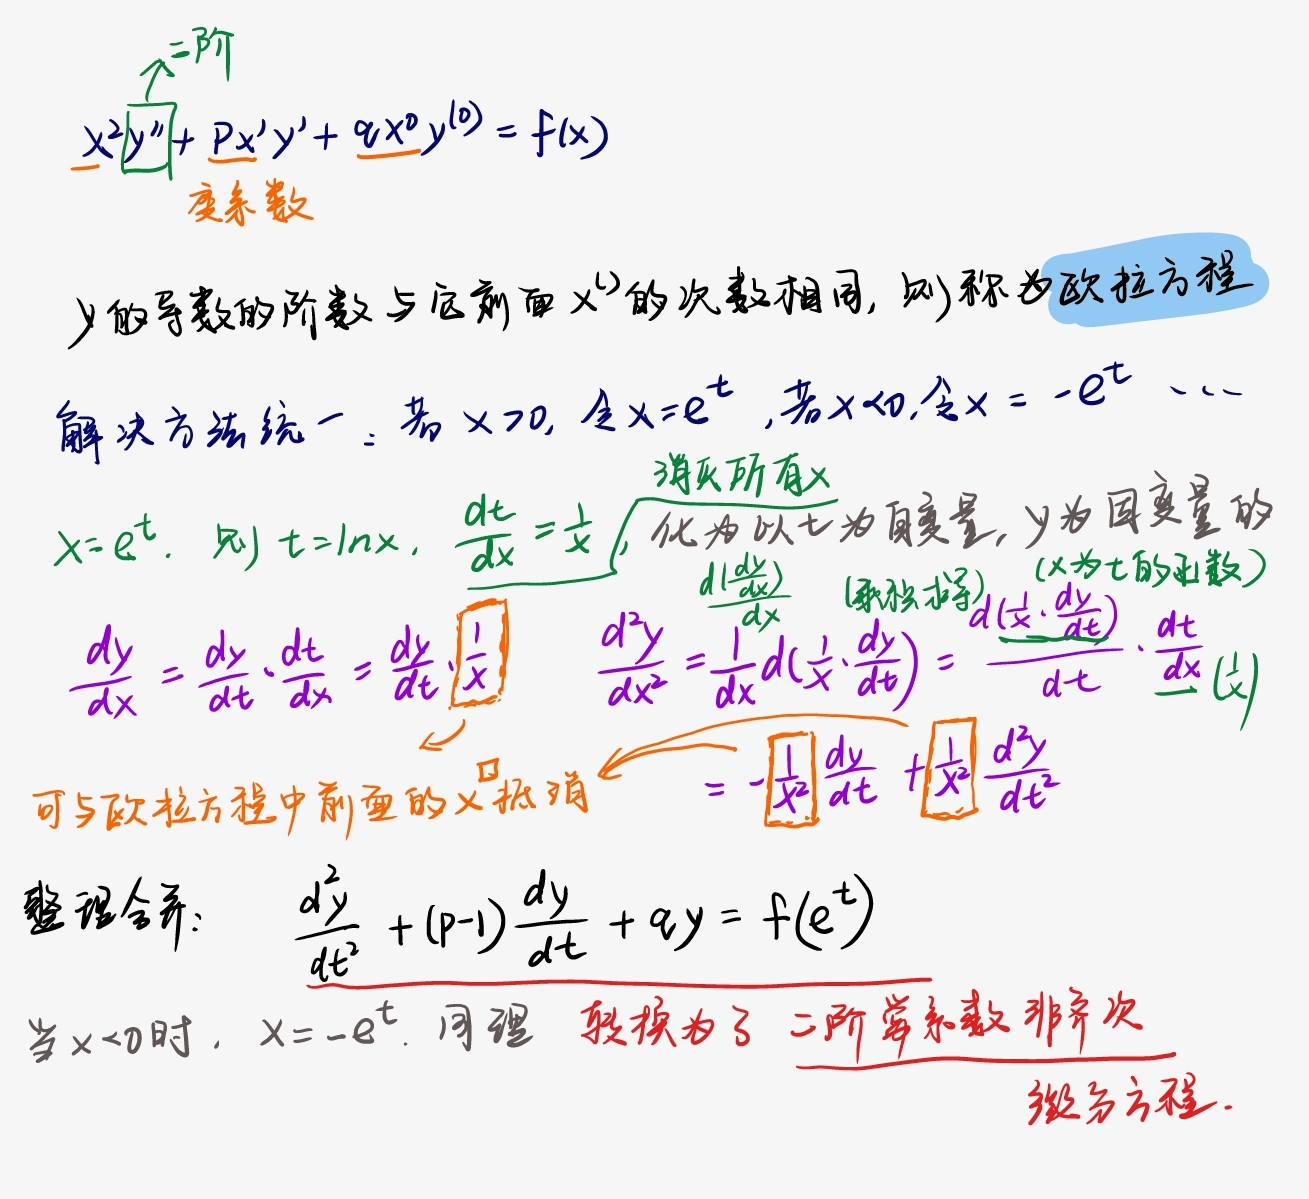 二阶
x²y″ + px'y' + qx⁰y⁽⁰⁾ = f(x)
变系数
y的导数的阶数与它前面x⁽⁾的次数相同, 则称为欧拉方程
解决方法统一: 若 x>0, 令x=eᵗ, 若x<0, 令x = -eᵗ ...
消灭所有x
x=eᵗ. 则 t=lnx, dt/dx = 1/x, 化为以t为自变量, y为因变量的
d(dy/dx)/dx (乘积求导) (x为t的函数)
dy/dx = dy/dt · dt/dx = dy/dt · 1/x d²y/dx² = 1/dx d(1/x · dy/dt) = d(1/x · dy/dt)/dt · dt/dx (1/x)
= -1/x² dy/dt + 1/x² d²y/dt²
可与欧拉方程中前面的x^□抵消
整理合并: d²y/dt² + (p-1) dy/dt + qy = f(eᵗ)
当x<0时, x=-eᵗ. 同理 转换为了 二阶常系数非齐次
微分方程.